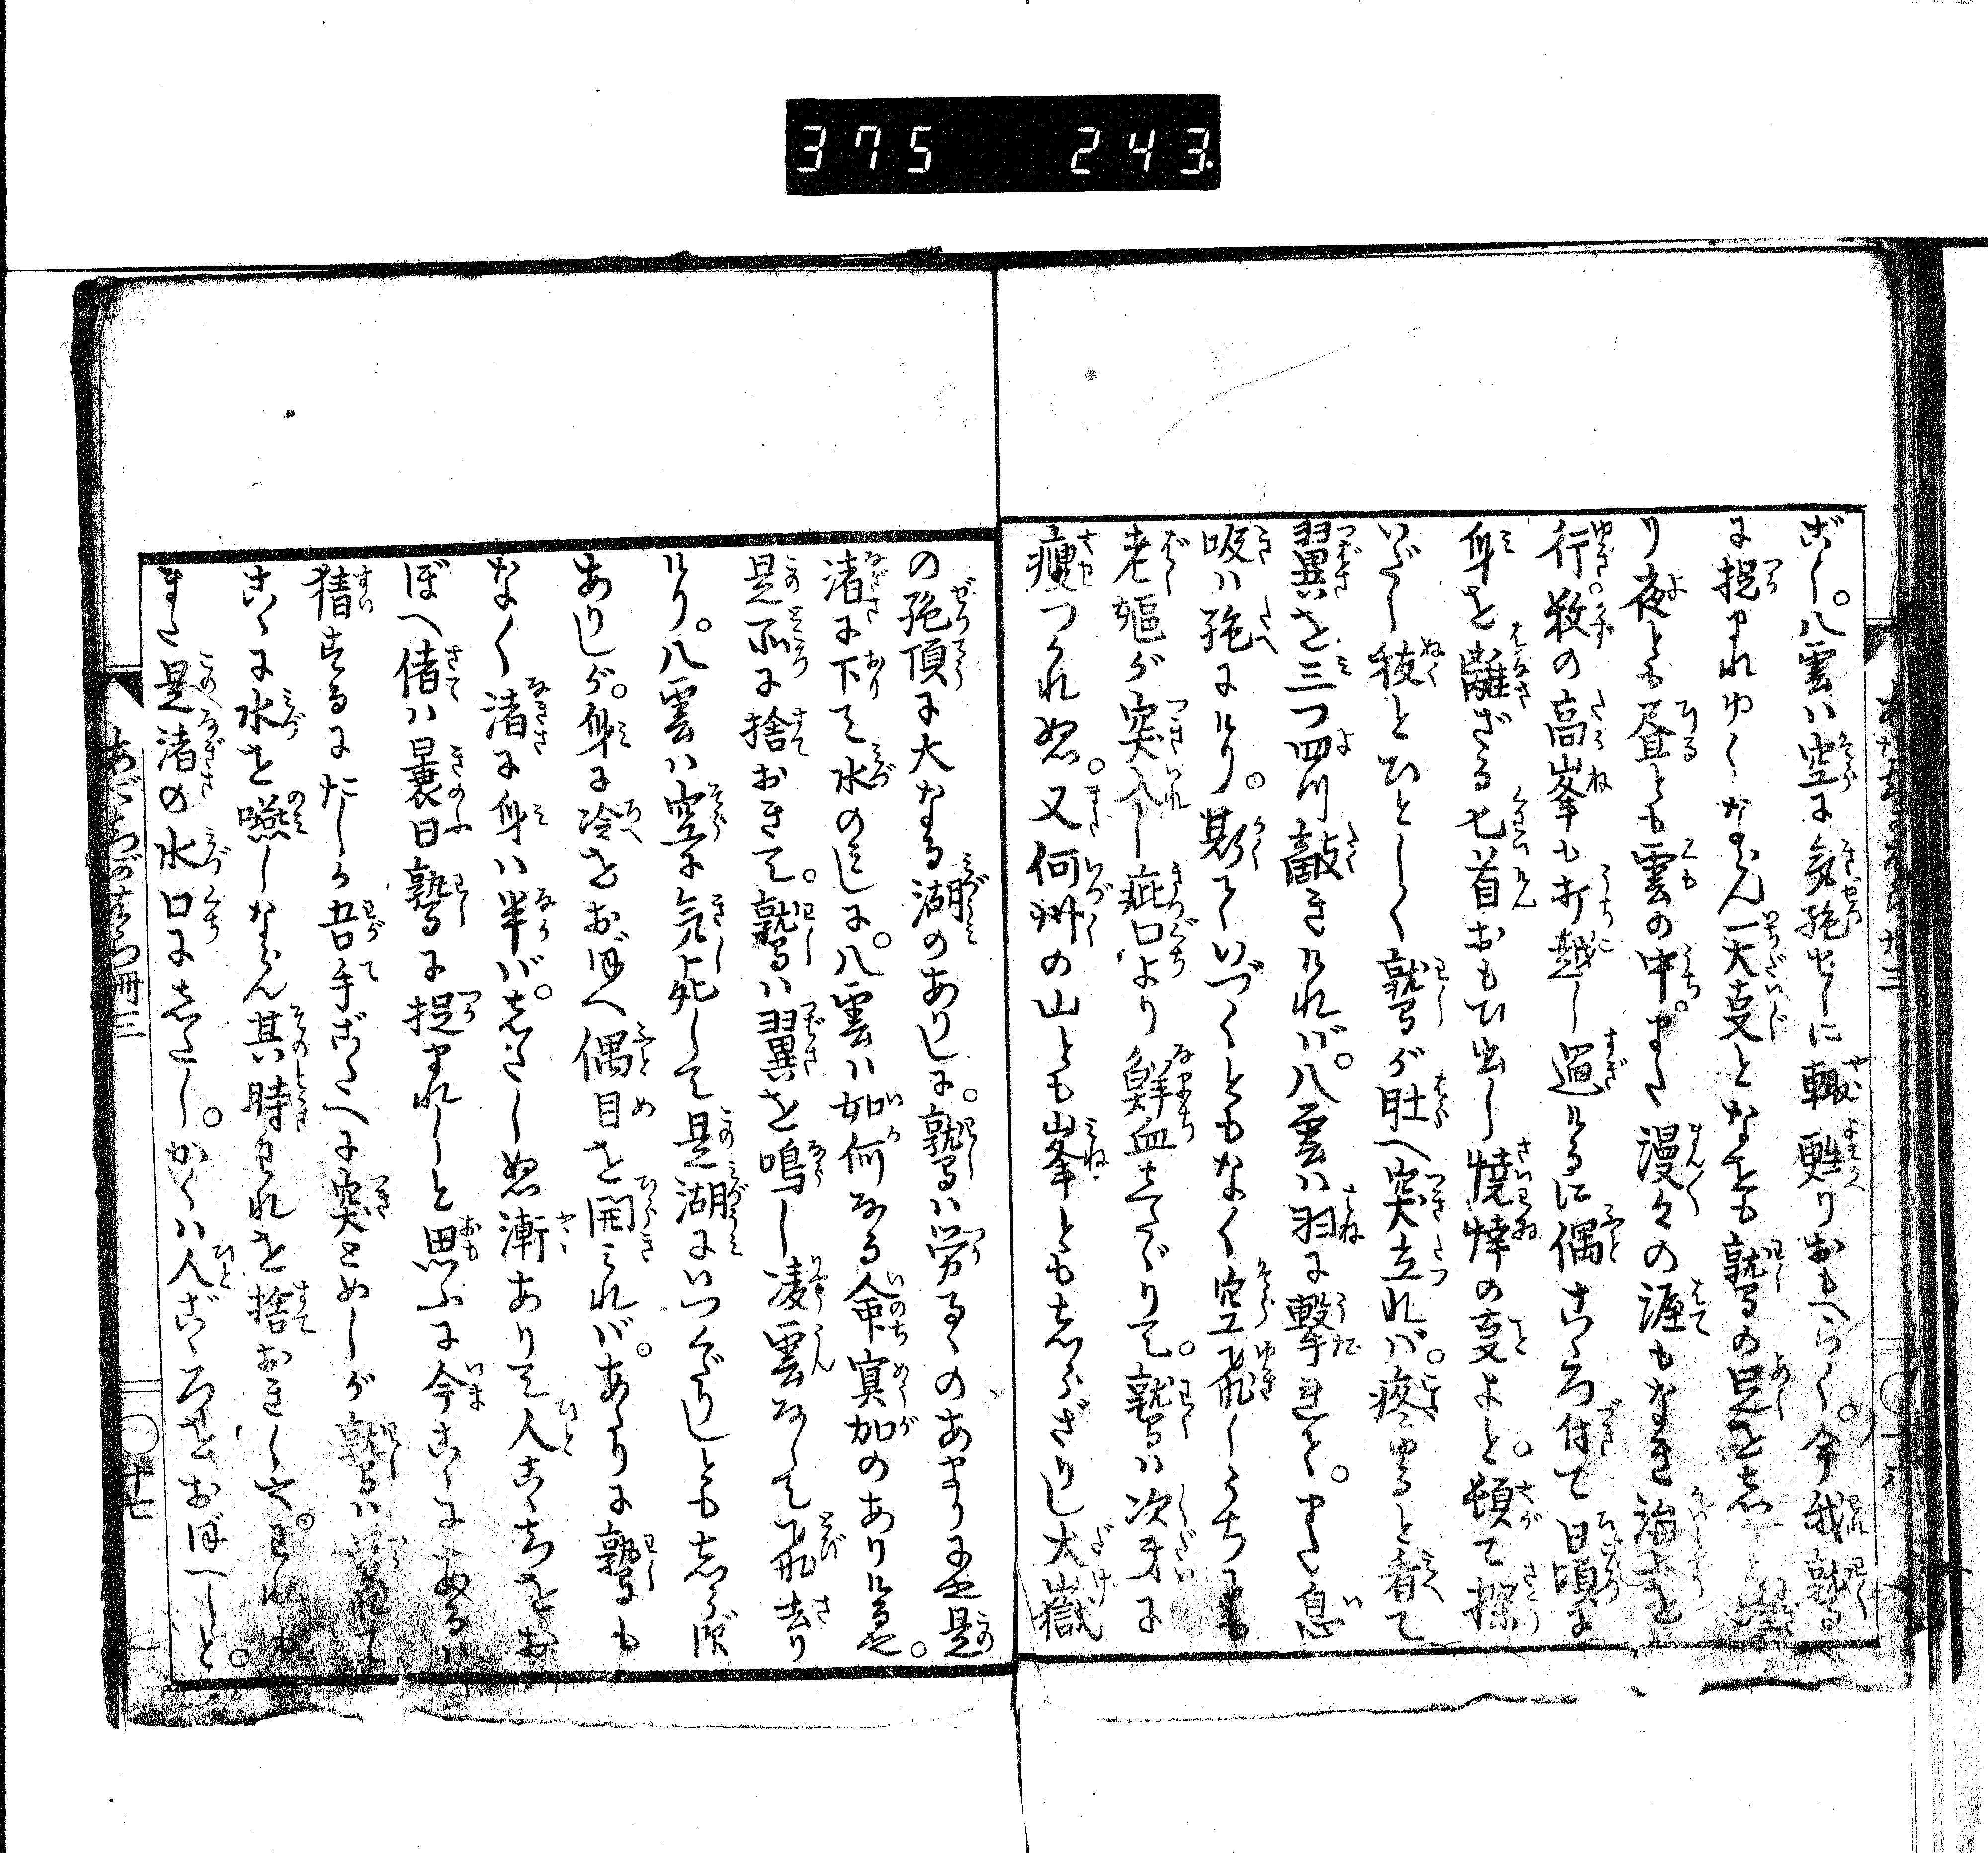 375 243
ごく。八雲ハ空に気絶せしに輙甦りおもへらく。今我鷲
に捉まれゆくなん一大事となせども鷲の足を
り夜とも昼とも雲の中。また漫々の涯もなき海上を
行数の高峯も打越し過けるに偶こゝろ付て日頃
身を離ざる匕首おもひ出し僥倖の事よと。頓て探
いだし抜とひとしく鷲が肚へ突立れバ。疼ゆると看て
翼を三つ四つ敲きけれバ。八雲ハ羽に撃れて。また息
吸ハ絶にけり。斯ていづくともなく空飛しうちにも
老嫗が突入し疵口より鮮血したゝりて。鷲ハ次才に
痩つかれぬ。又何州の山とも峯ともしらざりし大嶽
の絶頂に大なる湖のありしに。鷲ハ労るゝのあまりにや是
渚に下て水のミしに。八雲ハ如何なる命冥加のありけるや。
是所に捨おきて。鷲ハ翼を鳴し凌雲なして飛去り
けり。八雲ハ空に気死して是湖にいつくだりしともしらず
ありしが。身に冷をおぼへ偶目を開ミれバ。あたりに鷲も
なく渚に身ハ半バ。したしぬ漸ありて人こゝちをお
ぼへ偖ハ曩日鷲に捉まれしと思ふに今こゝにあるハ
猜するにたしか吾手ごたへに突とめしが鷲ハ
こゝに水を嚥しならん其時われを捨おきしや。われも
また是渚の水口にしたし。かくハ人ごゝろをおぼへしと。
十七